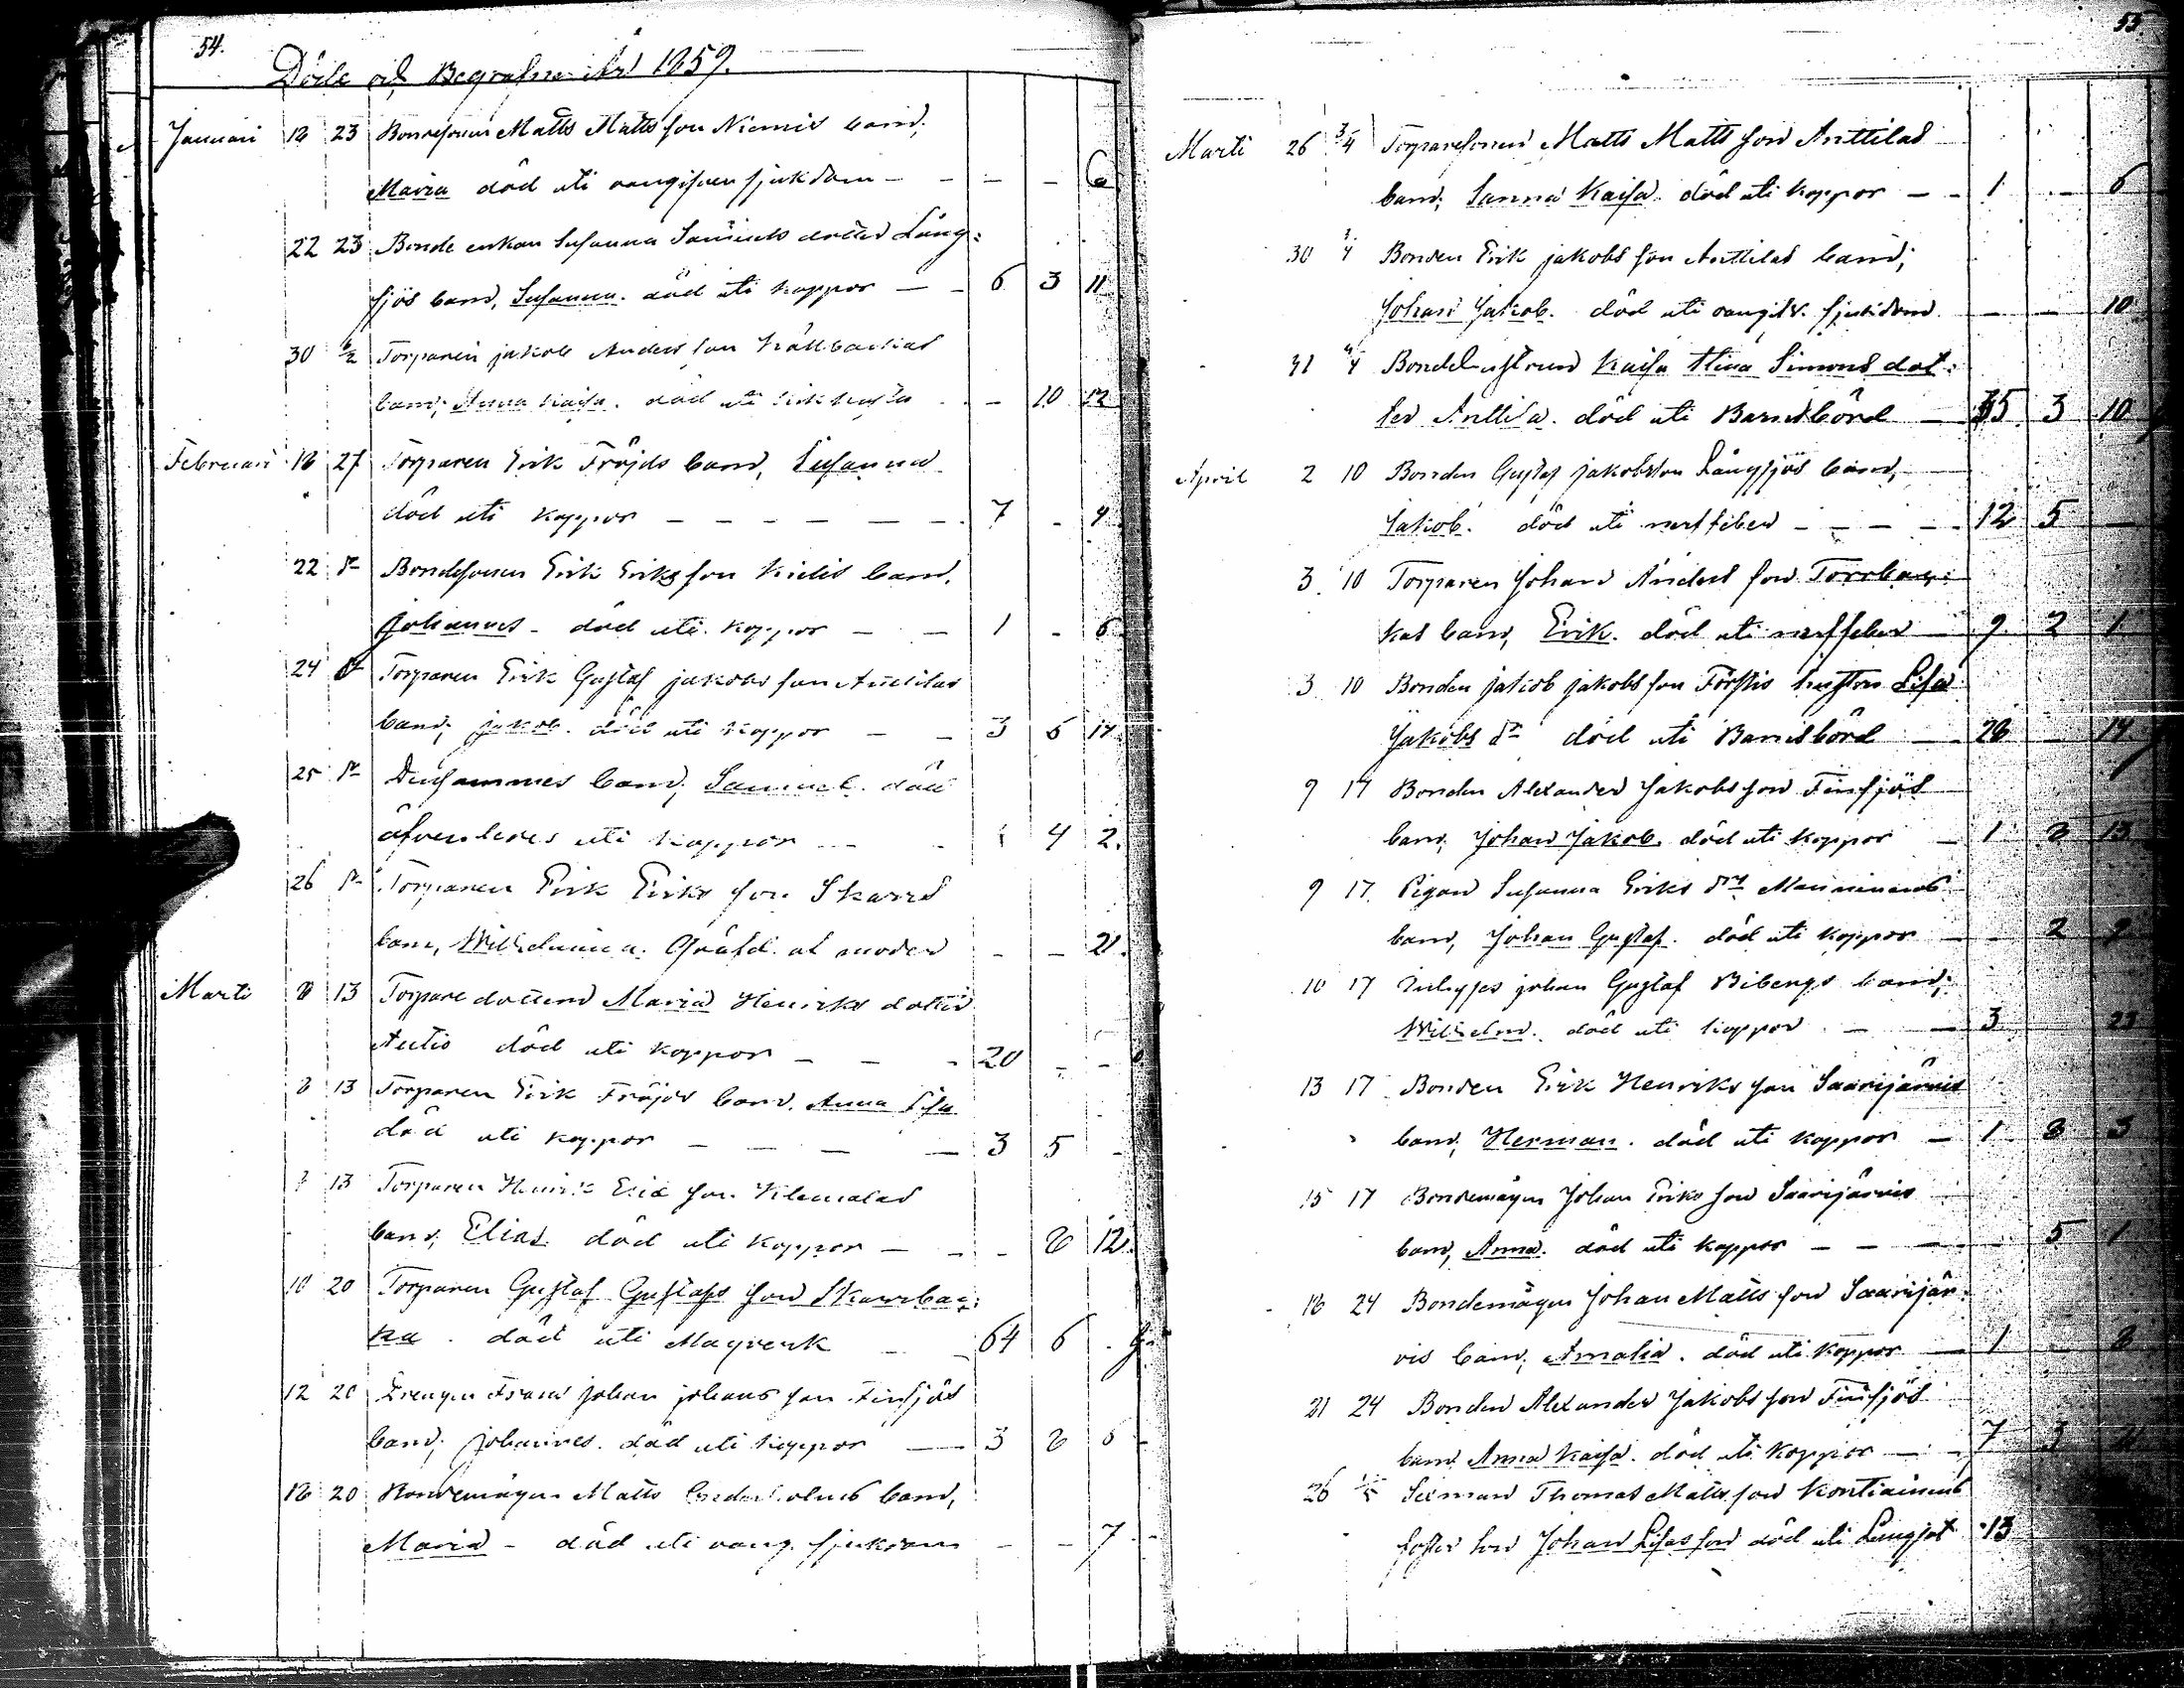 54.
Döde och Begrafne år 1859.
Januari 18 23 Bondesonen Matts Matts son Niemis barn,
Maria död uti oangifven sjukdom - - - - 6
22 23 Bonde enkan Susanna Samuels dotter Lång=
sjös barn, Susanna. död uti koppor - - 6 3 11
30 6/2 Torparen jakob Anders son
barn, Anna Kaisa. död uti kikhosta - 10 12
Februari 18 27 Torparen Erik Fröjds barn, Susanna
död uti koppor - - - - - - 7 - 4
22 Bondesonen Erik Eriks son barn,
Johannes - död uti koppor - - 1 - 6
24 Torparen Erik Gustaf jakobs son Anttilas
barn, jakob. död uti koppor - - 3 6 14
25 Densammes barn, Samuel. död
äfvenledes uti koppor - - 1 4 2.
26 Torparen Erik Eriks son Skarrs
barn, Wilhelmina. Qväfd af moder - - 21.
Marti 8 13 Torpare dottern Maria Henriks dotter
Autio död uti koppor - - - 20 - -
8 13 Torparen Erik Fröjds barn, Anna Lisa
död uti koppor - - - - 3 5 -
13 Torparen Henrik Eric son
barn, Elias. död uti koppor - - - 8 12.
10 20 Torparen Gustaf Gustafs son Skarrbac=
ka. död uti Magverk - - 64 6 .
12 20 Drengen Frans Johan johans son Finsjös
barn, Johannes. död uti koppor - 3 8 6
18 20 Bondemågen Matts barn,
Maria - död uti oang. sjukdom - - 7
55
Marti 26 3/4 Torparesonen Matts Matts son Anttilas
barn, Sanna Kaisa. död uti koppor - - 1 - 6
30 3/4 Bonden Erik jakobs son Anttilas barn,
Johan Jakob. död uti oangifv. sjukdom. - - 10
31 4/4 Bondehustrun Kaisa Stina Simons dot=
ter Anttila. död uti Barnsbörd - 35 3 10
April 2 10 Bonden Gustaf jakobsson Långsjös barn,
Jakob. död uti nerffeber - - - - 12 5 -
3. 10 Torparen Johan Anders son Torrbac=
kas barn, Erik. död uti nerffeber - 9 2 1
3 10 Bonden jakob jakobs son Förstis hustru Lisa
Jakobs dr död uti Barnsbörd - 28 14.
9 17 Bonden Alexander Jakobs son Finsjös
barn, Johan Jakob. död uti koppor - 1 8 13
9 17. Pigan Susanna Eriks dr Manninens
barn, Johan Gustaf. död uti koppor - - 2 9
10 17 johan Gustaf Bibergs barn,
Wilhelm. död uti koppor - - 3 23
13 17 Bonden Erik Henriks son Saarijärvis
barn, Herman. död uti koppor - 1 8 3
15 17 Bondemågen Johan Eriks son Saarijärvis
barn, Anna. död uti koppor - - - 5 1
18 24 Bondemågen Johan Matts son Saarijär=
vis barn, Amalia. död uti koppor - 1 - 8
21 24 Bonden Alexander Jakobs son Finsjös
barn Anna Kaisa. död uti koppor - 7 3
26 Thomas Matts son Kontiainens
foster son Johan Lisas son död uti Lungsot 13